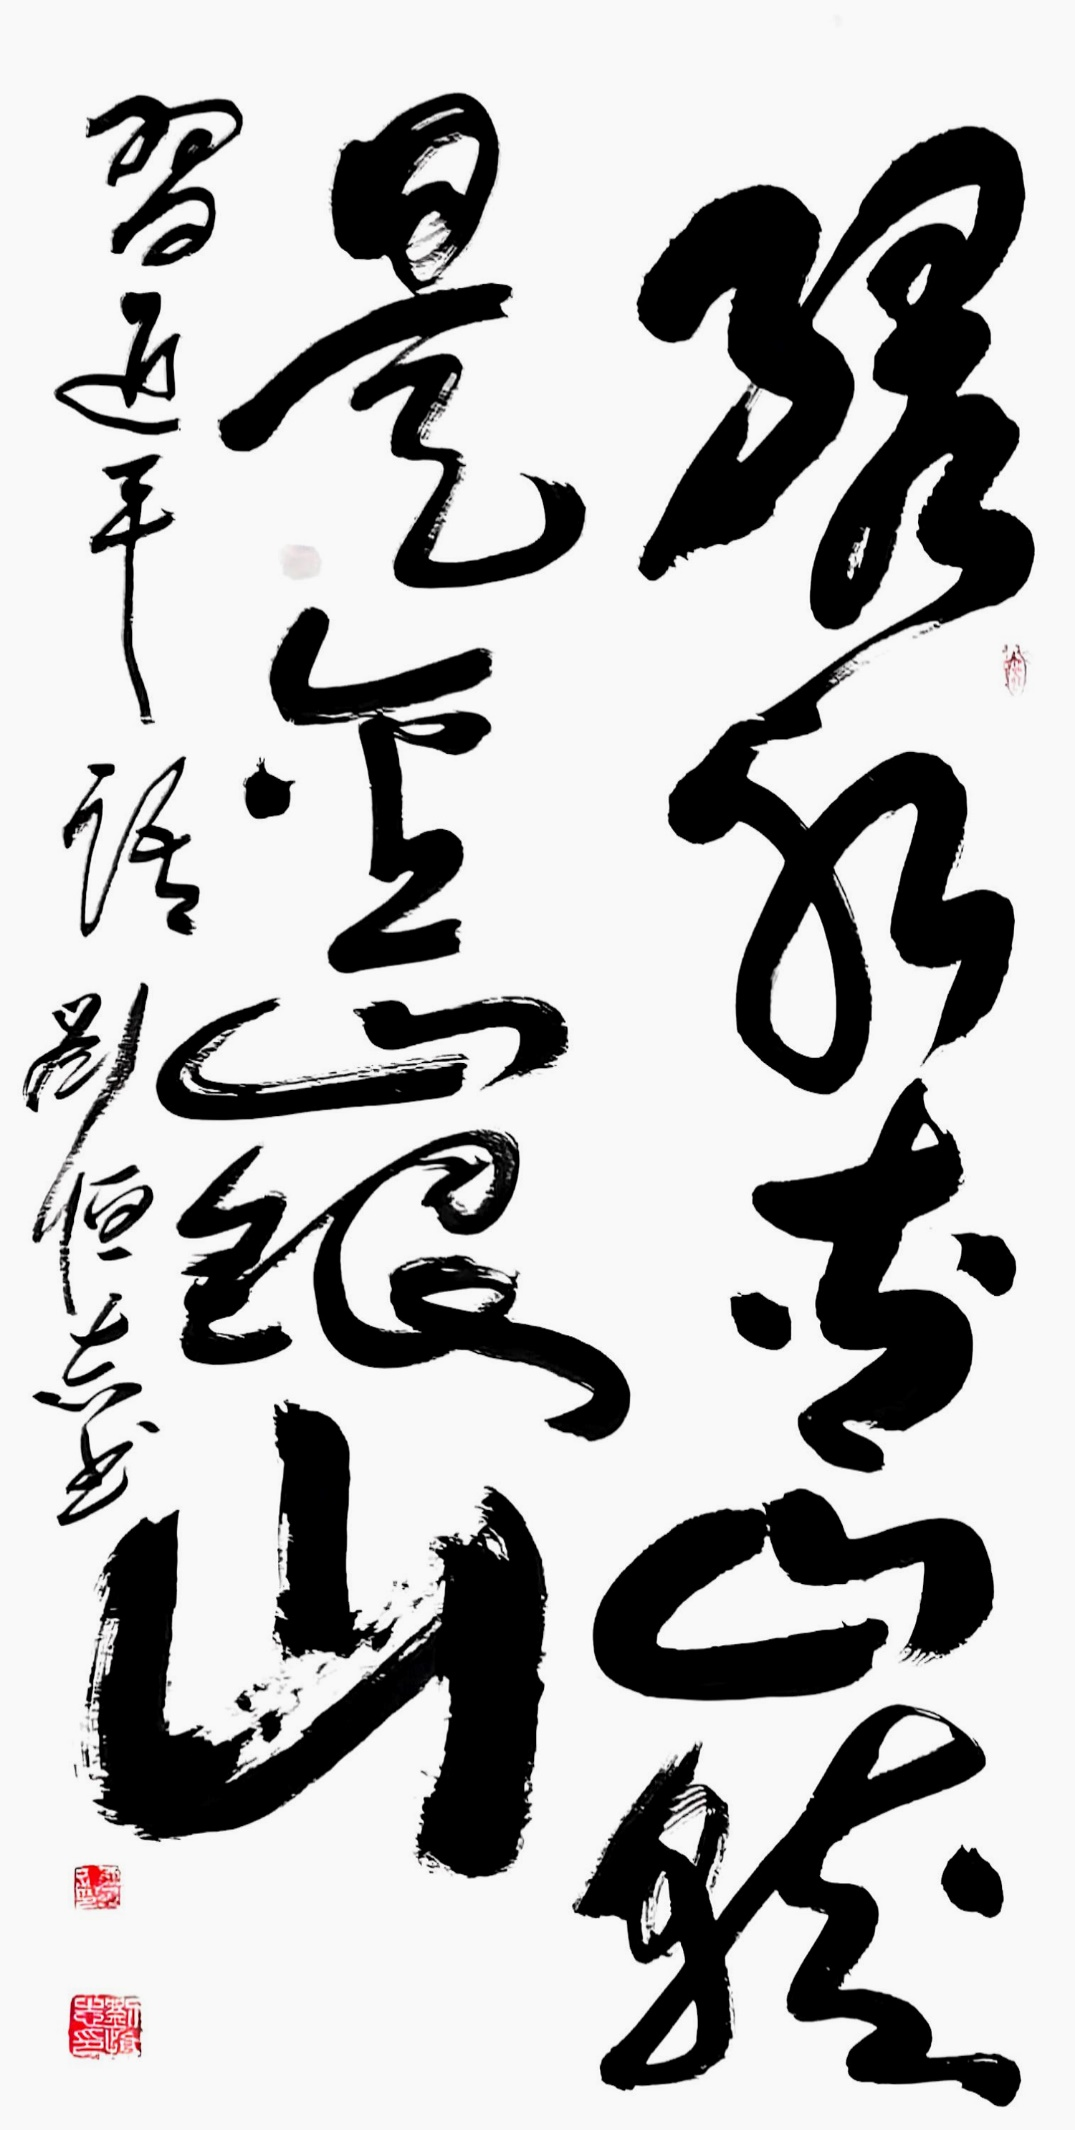 绿水青山就
是金山银山
习近平语刘恒志书